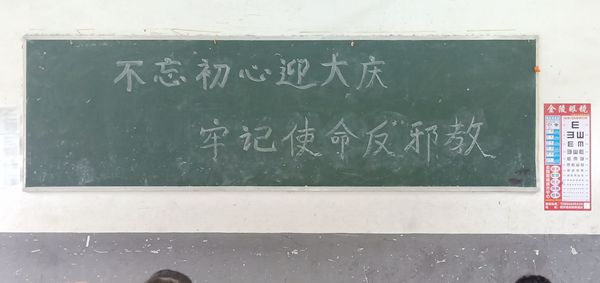 不忘初心迎大庆
牢记使命反邪教
金陵眼镜
E